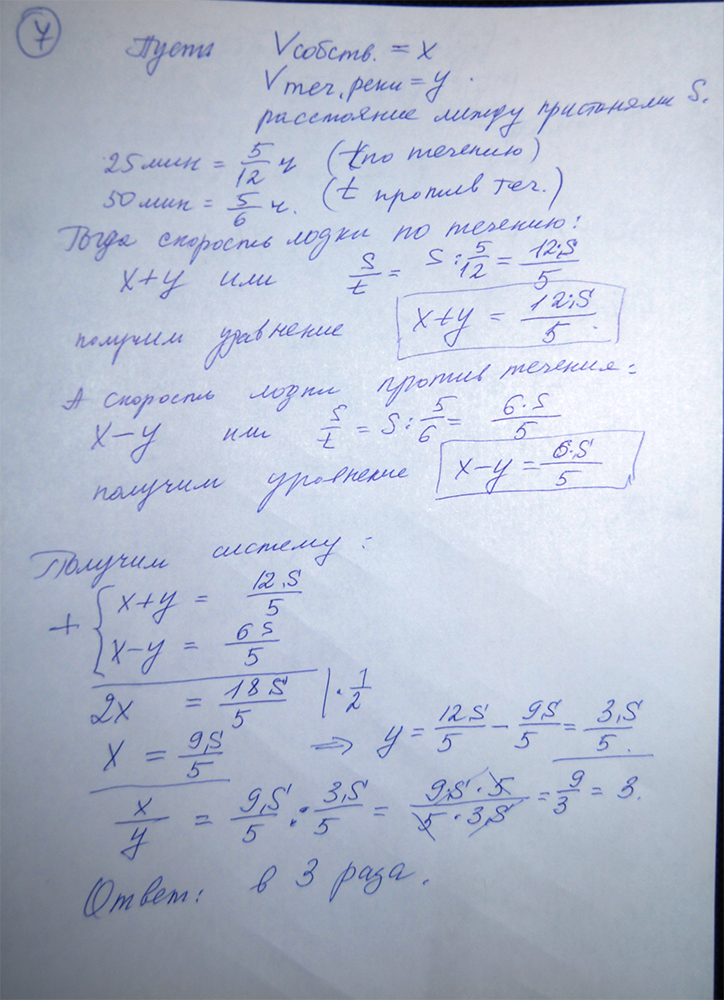 7
Пусть Vсобств. = x
Vтеч. реки = y.
расстояние между пристанями S.
25 мин = 5/12 ч (t по течению)
50 мин = 5/6 ч. (t против теч.)
Тогда скорость лодки по течению:
x+y или S/t = S : 5/12 = 12·S/5
получим уравнение x+y = 12·S/5.
А скорость лодки против течения:
x−y или S/t = S : 5/6 = 6·S/5
получим уравнение x−y = 6·S/5
Получим систему:
+ { x+y = 12·S/5
x−y = 6S/5
2x = 18S/5 | · 1/2
x = 9S/5 ⇒ y = 12S/5 − 9S/5 = 3S/5.
x/y = 9S/5 : 3S/5 = 9·S·5/5·3S = 9/3 = 3.
Ответ: в 3 раза.